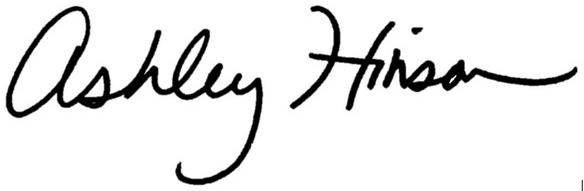 Ashley Hinson